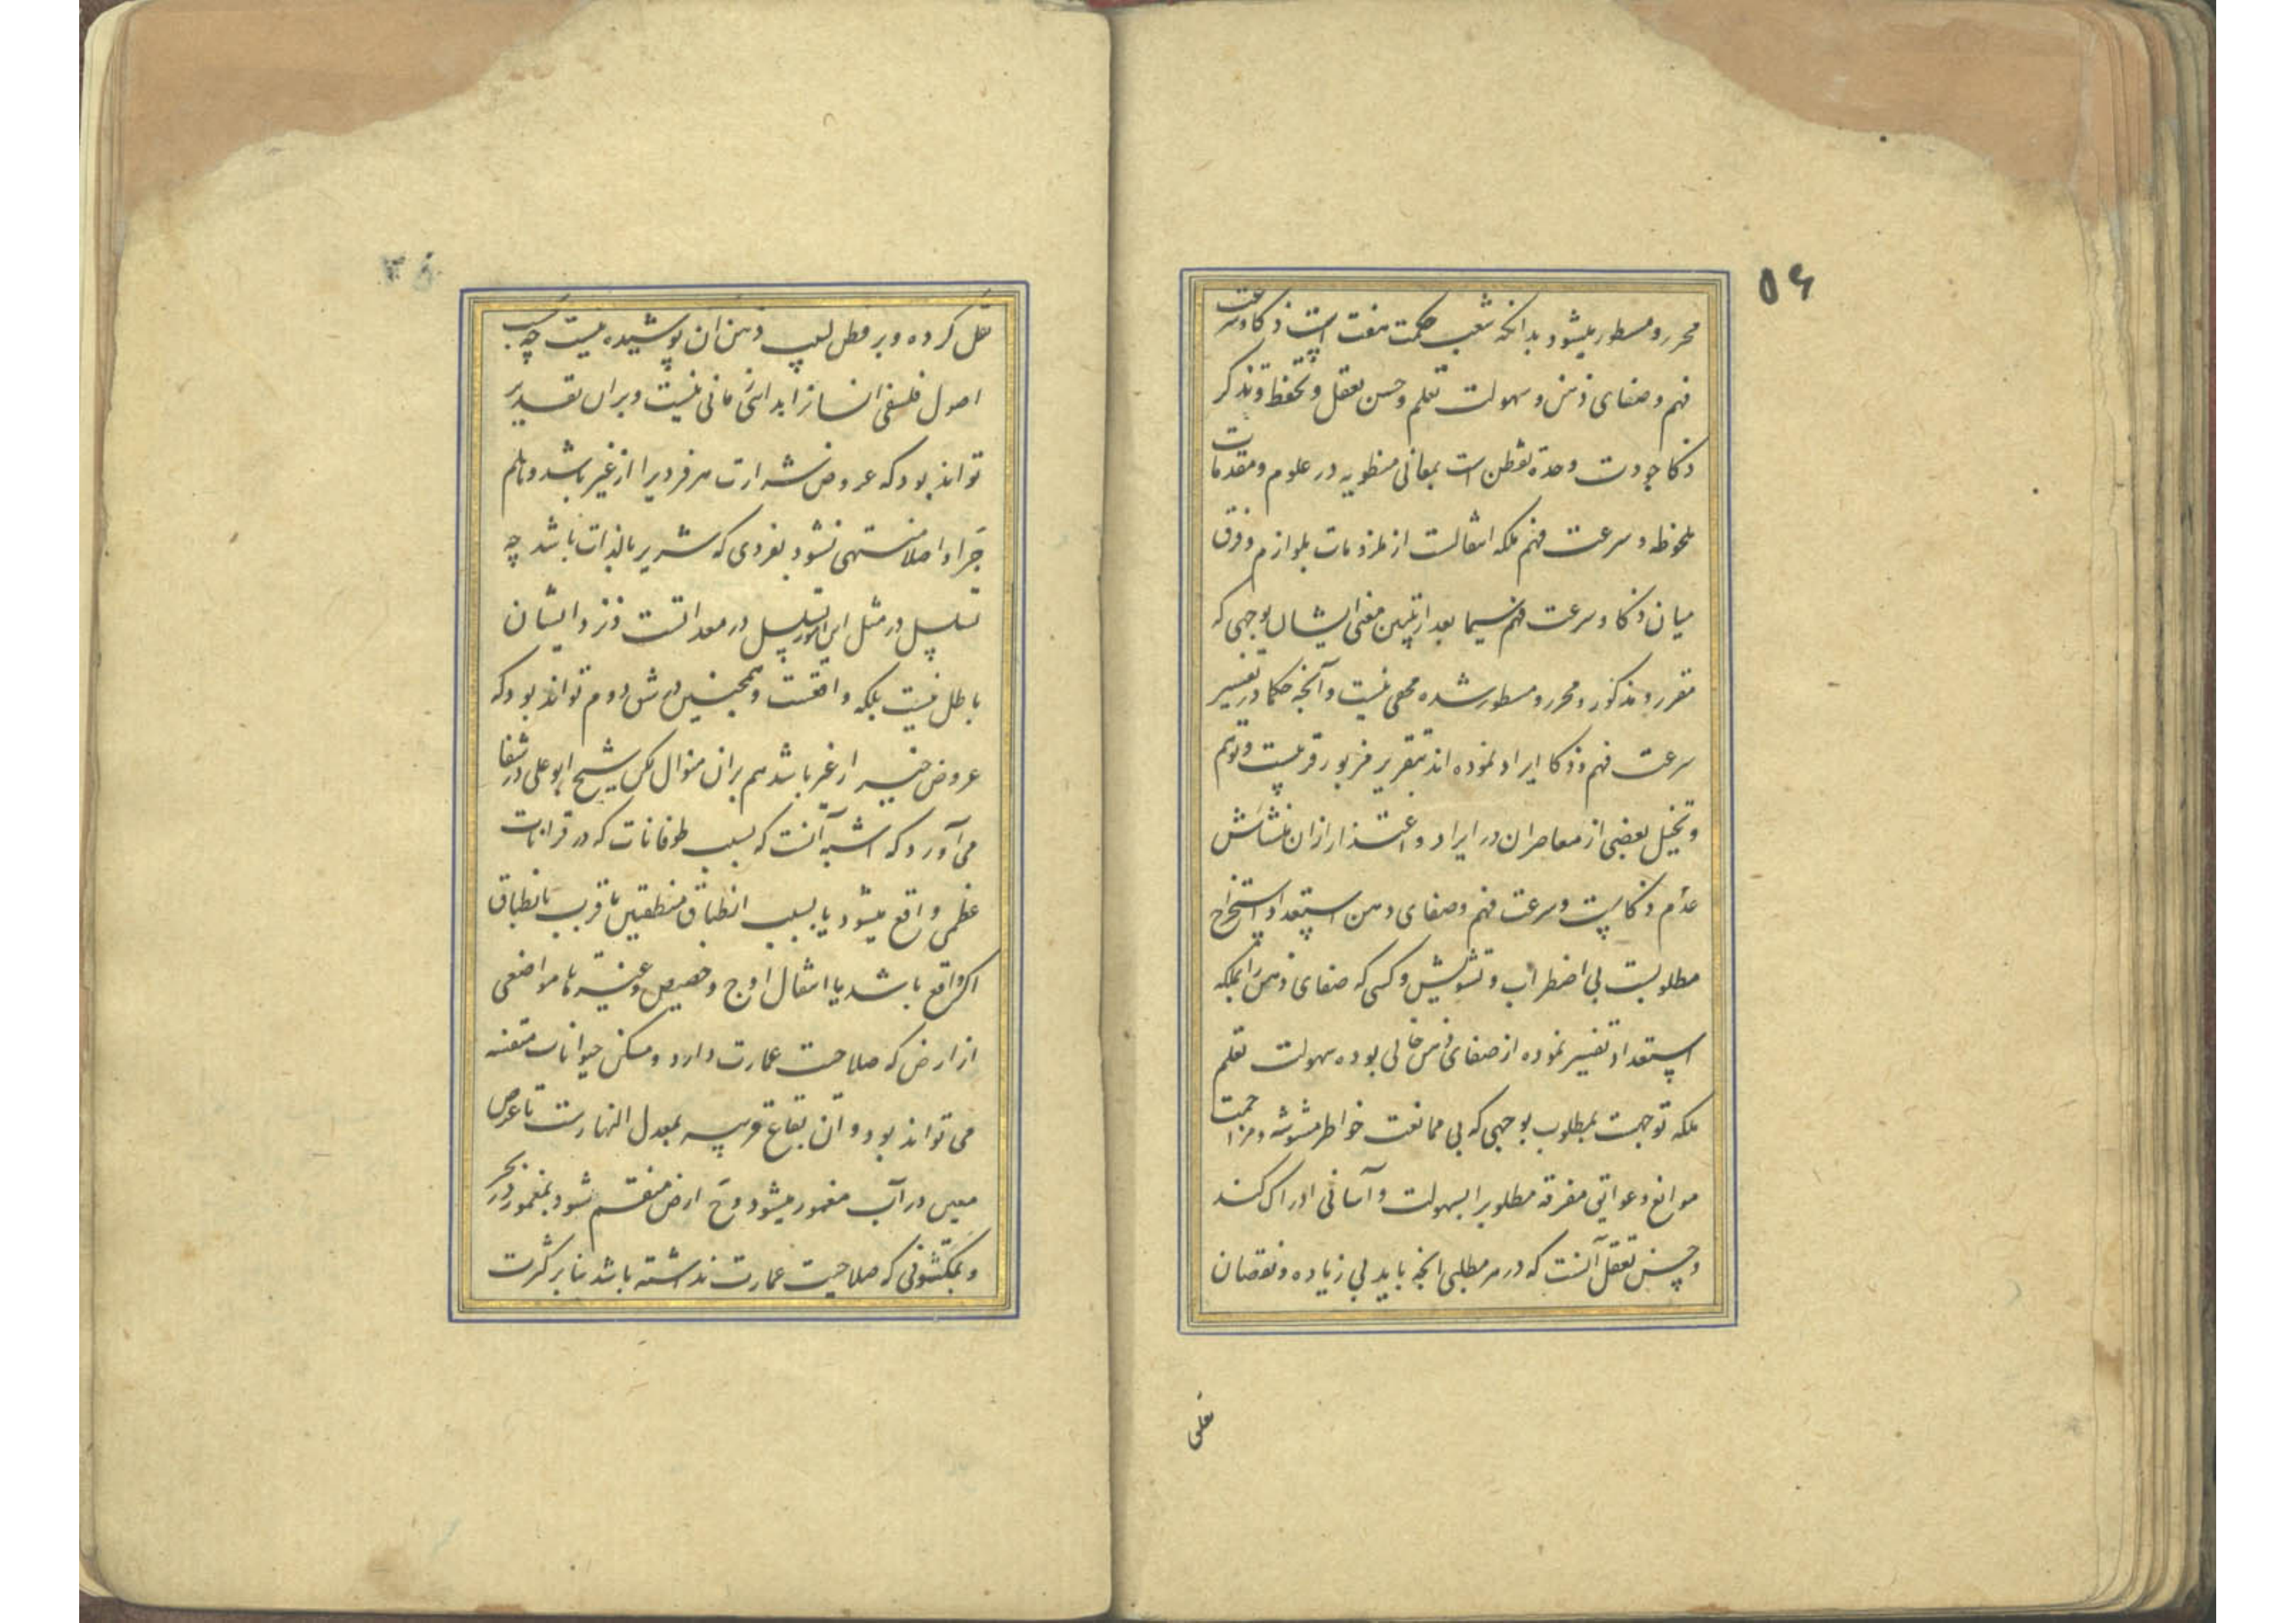 ۵۶
محرر و مسطور میشود بدانکه شعب حکمت هفت است ذکا و سرعت
فهم و صفای ذهن و سهولت تعلم و حسن تعقل و تحفظ و تذکر
ذکا جودت وحدة تفطن است بمعانی منطویه در علوم و مقدمات
ملحوظه و سرعت فهم ملکه انتقالست از ملزومات بلوازم و فرق
میان ذکا و سرعت فهم سیما بعد از تبیین معنی ایشان بوجهی که
مقرر و مذکور و محرر و مسطور شده مخفی نیست و آنچه حکما در تفسیر
سرعت فهم و ذکا ایراد نموده اند بتقریر مزبور قریبست و توهم
و تخیل بعضی از معاصران در ایراد و اعتذار ازان منشائش
عدم ذکاست و سرعت فهم و صفای ذهن استعداد استخراج
مطلوبست بی اضطراب و تشویش و کسی که صفای ذهن را بملکه
استعداد تفسیر نموده از صفای ذهن خالی بوده سهولت تعلم
ملکه توجهست بمطلوب بوجهی که بی ممانعت خواطر مشوشه و مزاحمت
موانع و عوایق مفرقه مطلوبرا بسهولت و آسانی ادراک کند
و حسن تعقل آنست که در هر مطلبی آنچه باید بی زیاده و نقصان
نقل کرده و بر فطن لبیب و ذهن ان پوشیده نیست چه بحسب
اصول فلسفی انسانرا ابدای زمانی نیست و بران تقدیر
تواند بود که عروض شرارت هر فردیرا از غیر باشد و هلم
جرا و اصلا منتهی نشود بفردی که شریر بالذات باشد چه
تسلسل در مثل این امور تسلسل در معداتست و نزد ایشان
باطل نیست بلکه واقعست و همچنین در شق دوم تواند بود که
عروض خیر از غیر باشد هم بران منوال لکن شیخ ابو علی در شفا
می آورد که اشبه آنست که بسبب طوفانات که در قرانات
عظمی واقع میشود یا بسبب انطباق منطقتین یا قریب بانطباق
اگر واقع باشد یا انتقال اوج و حضیض و غیره با مواضعی
از ارض که صلاحیت عمارت دارد و مسکن حیوانات متنفسه
می تواند بود و آن بقاع قریبه بمعدل النهارست تا عرض
معین در آب مغمور میشود و ح ارض منقسم شود بمغمور در بحر
و بمکشوفی که صلاحیت عمارت نداشته باشد بنا بر کثرت